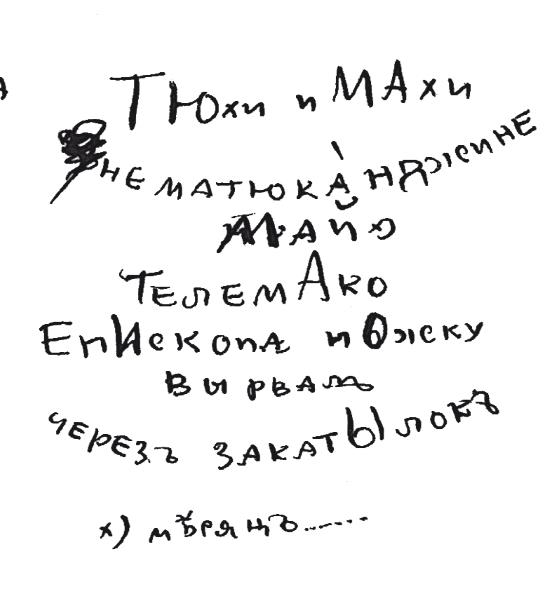 Тюхи и МАхи
НЕ МАТЮКА́ НДЖИНЕ
МАЙО
ТЕЛЕМАКО
ЕпИскопА и Ожку
вырвАл
ЧЕРЕЗЪ ЗАКАТЫЛОКЪ
х) мѣрянъ......